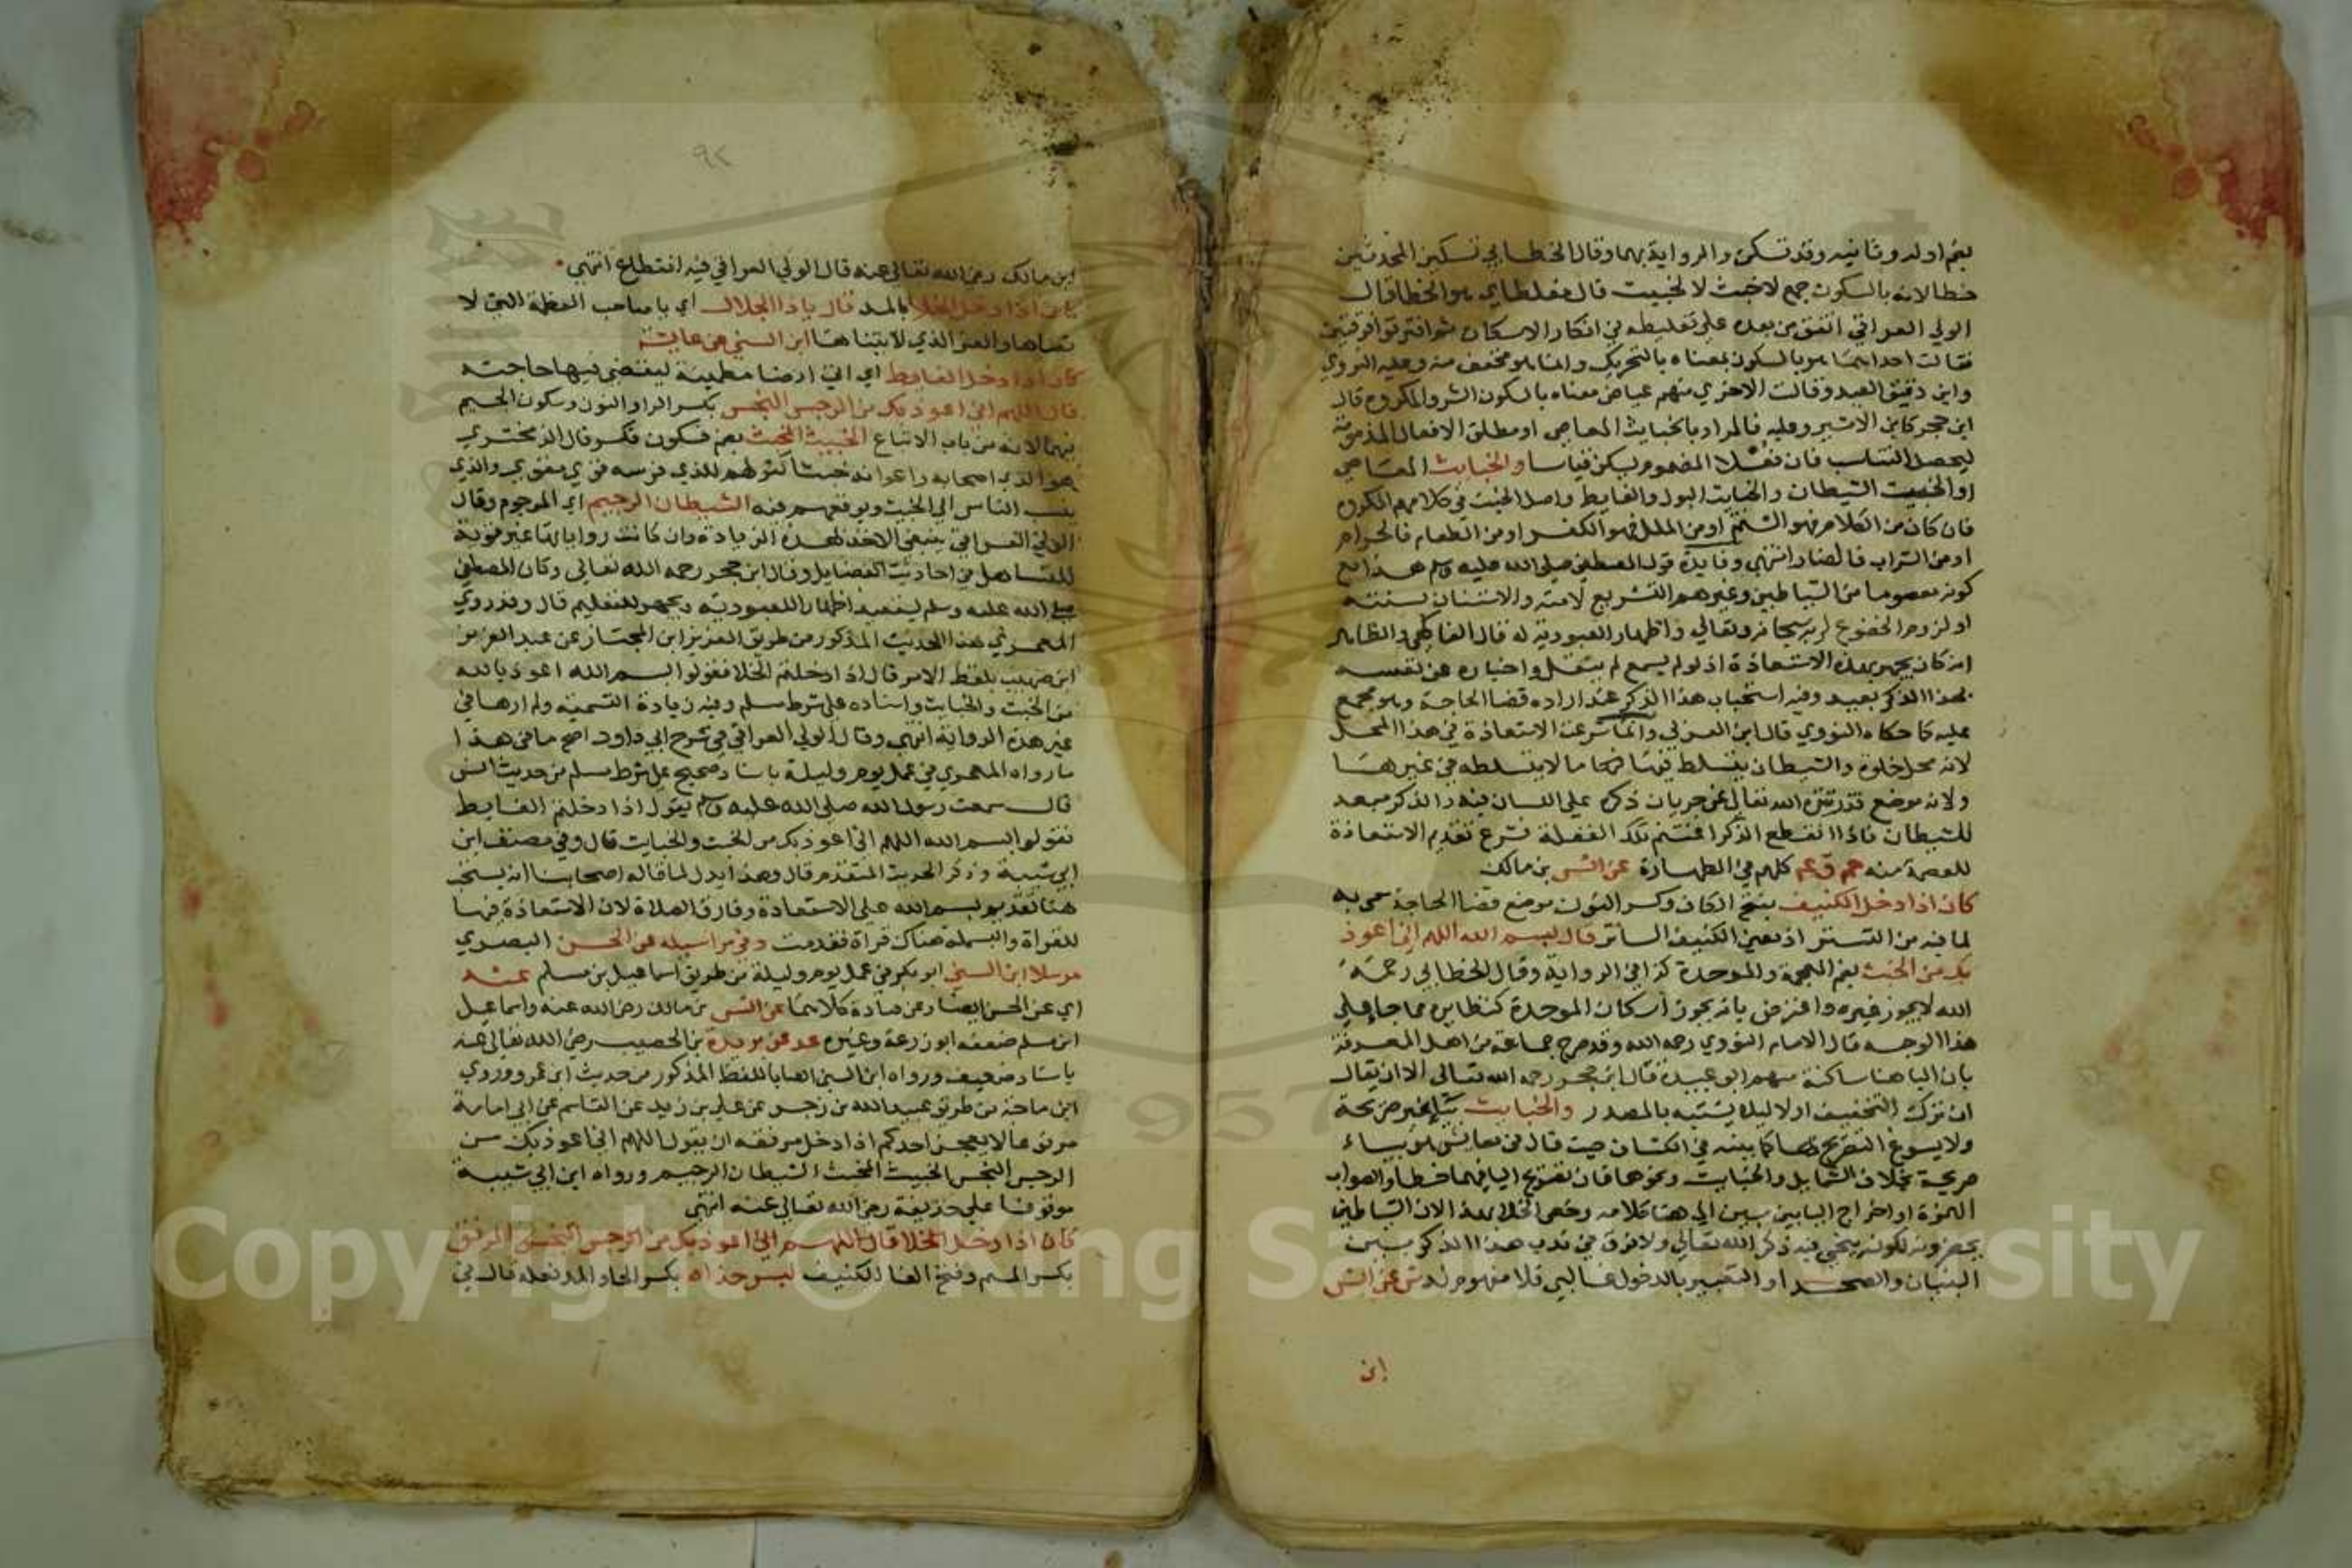 بضم اوله وثانيه وقد تسكن والرواية بهما وقال الخطابي تسكين المحدثين
خطا لانه بالسكون جمع لاخبث لا لخبيث قال مغلطاي هو الخطا قال
الولي العراقي اتفق من بعده على تغليطه في انكار الاسكان ثم افترقوا فرقتين
فقالت احداهما هو بالسكون بمعناه بالتحريك وانما هو مخفف منه وعليه النووي
وابن دقيق العيد وقالت الاخري منهم عياض معناه بالسكون الشر والمكروه قال
ابن حجر كابن الاثير وعليه فالمراد بالخبايث المعاصي او مطلق الافعال المذمومة
ليحصل التناسب فان نقلا المفهوم يكن قياسا والخبايث المعاصي
او الخبيث الشيطان والخبايث البول والغايط واصل الخبث في كلامهم المكروه
فان كان من الكلام فهو الشتم او من الملل فهو الكفر او من الطعام فالحرام
او من الشراب فالضار انتهي وفايدة قول المصطفي صلي الله عليه وسلم هذا مع
كونه معصوما من الشياطين وغيرهم التشريع لامته والاستنان بسنته
او لزوم الخضوع لربه سبحانه وتعالي واظهار العبودية له قال الفاكهي والظاهر
انه كان يجهر بهذه الاستعاذة اذ لو لم يسمع لم ينقل واخباره عن نفسه
بهذا الذكر بعيد وفيه استحباب هذا الذكر عند اراده قضا الحاجة وهو مجمع
عليه كما حكاه النووي قال ابن العربي وانما شرعت الاستعاذة في هذا المحل
لانه محل خلوة والشيطان يتسلط فيها ما لا يتسلطه في غيرها
ولانه موضع قذر تنزه الله تعالي عن جريان ذكره علي اللسان فيه والذكر مبعد
للشيطان فاذا انقطع الذكر اغتنم تلك الغفلة فشرع تقديم الاستعاذة
للعصمة منه حم ق عم كلهم في الطهارة عن انس بن مالك
كان اذا دخل الكنيف بفتح الكاف وكسر النون موضع قضا الحاجة سمي به
لما فيه من التستر اذ معني الكنيف الساتر قال بسم الله اللهم اني اعوذ
بك من الخبث بضم المعجمة والموحدة كذا في الرواية وقال الخطابي رحمة
الله لا يجوز غيره واعترض بانه يجوز اسكان الموحدة كنظايره مما جا علي
هذا الوجه قال الامام النووي رحمه الله وقد صرح جماعة من اهل المعرفة
بان البا هنا ساكنة منهم ابو عبيدة قال ابن حجر رحمه الله تعالي الا ان يقال
ان ترك التخفيف اولا ليلا يشتبه بالمصدر والخبايث بيا غير صريحة
ولا يسوغ التصريح بها كما بينه في الكشاف حيث قال في معايش هو بياء
صريحة بخلاف الشمايل والخبايث ونحوها فان تصريح اليا فيها خطا والصواب
الهمزة او اخراج اليا بين بين الي هنا كلامه وخص الخلا بهذا لان الشياطين
يحضرونه لكونه ينحي فيه ذكر الله تعالي ولا فرق في ندب هذا الذكر بين
البنيان والصحرا والتعبير بالدخول غالبي فلا مفهوم له ش عن انس
ابن
٩٢
ابن مالك رضي الله تعالي عنه قال الولي العراقي فيه انقطاع انتهي
كان اذا دخل الخلا بالمد قال ياذا الجلال اي يا صاحب العظمة التي لا
تضاها والعز الذي لا يتناها ابن السني عن عايشة
كان اذا دخل الغايط اي اتي ارضا مطمينة ليقضي فيها حاجته
قال اللهم اني اعوذ بك من الرجس النجس بكسر الرا والنون وسكون الجيم
فيهما لانه من باب الاتباع الخبيث المخبث بضم فسكون فكسر قال الزمخشري
هو الذي اصحابه واعوانه خبثا كقولهم للذي فرسه قوي مقوي والذي
ينسب الناس الي الخبث ويوقعهم فيه الشيطان الرجيم اي المرجوم وقال
الولي العراقي ينبغي الاخذ بهذه الزيادة وان كانت رواياتها غير قوية
للتساهل في احاديث الفضايل وقال ابن حجر رحمه الله تعالي وكان المصطفي
صلي الله عليه وسلم يستعيذ اظهارا للعبودية ويجهر للتعليم قال وقد روي
المعمري هذا الحديث المذكور من طريق العزيز ابن المختار عن عبد العزيز
ابن صهيب بلفظ الامر قال اذا دخلتم الخلا فقولوا بسم الله اعوذ بالله
من الخبث والخبايث واسناده علي شرط مسلم وفيه زيادة التسمية ولم ارها في
غير هذه الرواية انتهي وقال الولي العراقي في شرح ابي داود اصح ما في هذا
ما رواه المعمري في عمل يوم وليلة باسناد صحيح علي شرط مسلم من حديث انس
قال سمعت رسول الله صلي الله عليه وسلم يقول اذا دخلتم الغايط
فقولوا بسم الله اللهم اني اعوذ بك من الخبث والخبايث قال وفي مصنف ابن
ابي شيبة وذكر الحديث المتقدم قال وهذا يدل لما قاله اصحابنا انه يستحب
هنا تقديم بسم الله علي الاستعاذة وفارق الصلاة لان الاستعاذة فيها
للقراة والبسملة هناك قراة فقدمت د في مراسيله عن الحسن البصري
مرسلا ابن السني ابو بكر في عمل يوم وليلة من طريق اسماعيل بن مسلم عنه
اي عن الحسن ايضا وعن قتادة كلاهما عن انس بن مالك رضي الله عنه واسماعيل
ابن مسلم ضعفه ابو زرعة وغيره عد عن بريدة بن الحصيب رضي الله تعالي عنه
باسناد ضعيف ورواه ابن السني ايضا باللفظ المذكور من حديث ابن عمر وروي
ابن ماجة من طريق عبيد الله بن زحر عن علي بن زيد عن القاسم عن ابي امامة
مرفوعا لا يعجز احدكم اذا دخل مرفقه ان يقول اللهم اني اعوذ بك من
الرجس النجس الخبيث المخبث الشيطان الرجيم ورواه ابن ابي شيبة
موقوفا علي حذيفة رضي الله تعالي عنه انتهي
كان اذا دخل الخلا قال اللهم اني اعوذ بك من الرجس النجس المرفق
بكسر الميم وفتح الفا الكنيف لبس حذاه بكسر الحا والمد نعله قال في
Copyright © King Saud University
1957